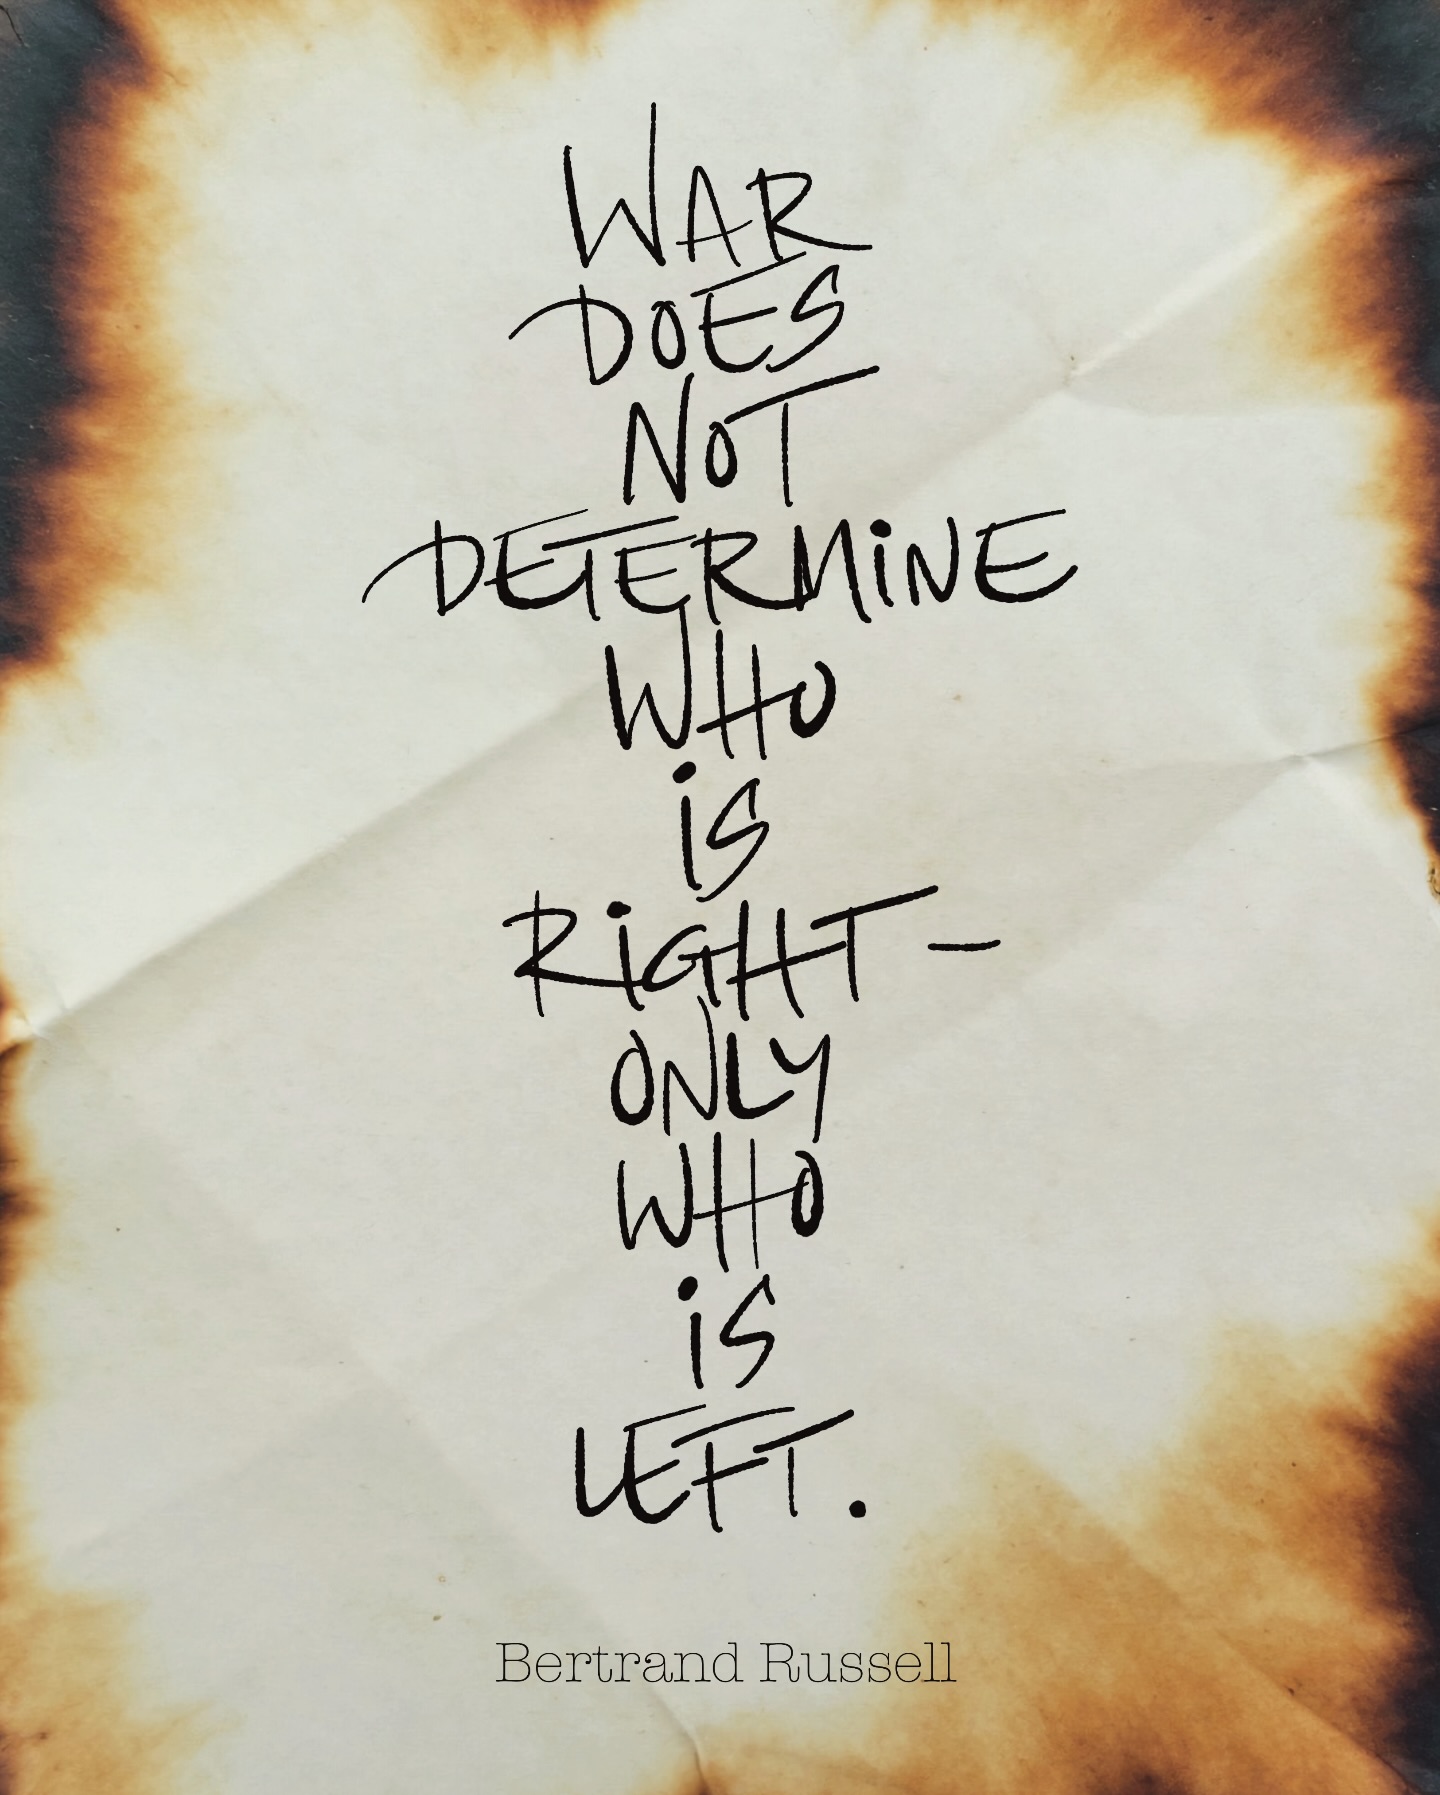 WAR
DOES
NOT
DETERMiNE
WHO
iS
RiGHT –
ONLY
WHO
iS
LEFT.
Bertrand Russell